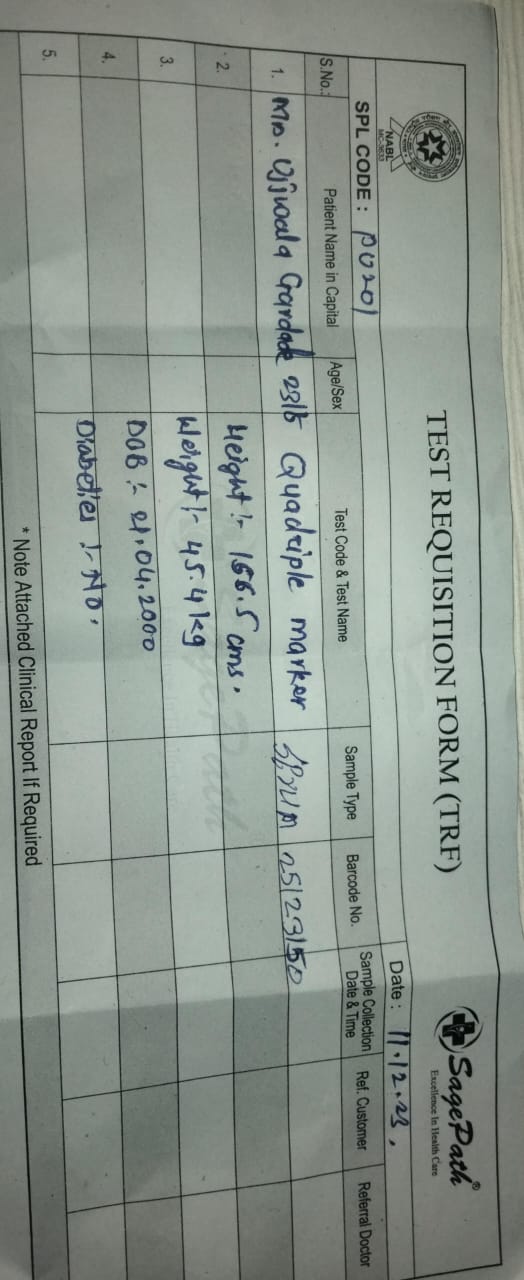 NABL
MC-3633
TEST REQUISITION FORM (TRF)
SagePath®
Excellence In Health Care
SPL CODE : PU201
Date : 11.12.23,
S.No.: Patient Name in Capital Age/Sex Test Code & Test Name Sample Type Barcode No. Sample Collection Date & Time Ref. Customer Referral Doctor
1. Ujjwala Gardade Quadriple marker 25123150
2. Height :- 166.5 cms.
3. Weight :- 45.4 kg
4. DOB :- 21.04.2000
5. Diabeties :- No.
* Note Attached Clinical Report If Required